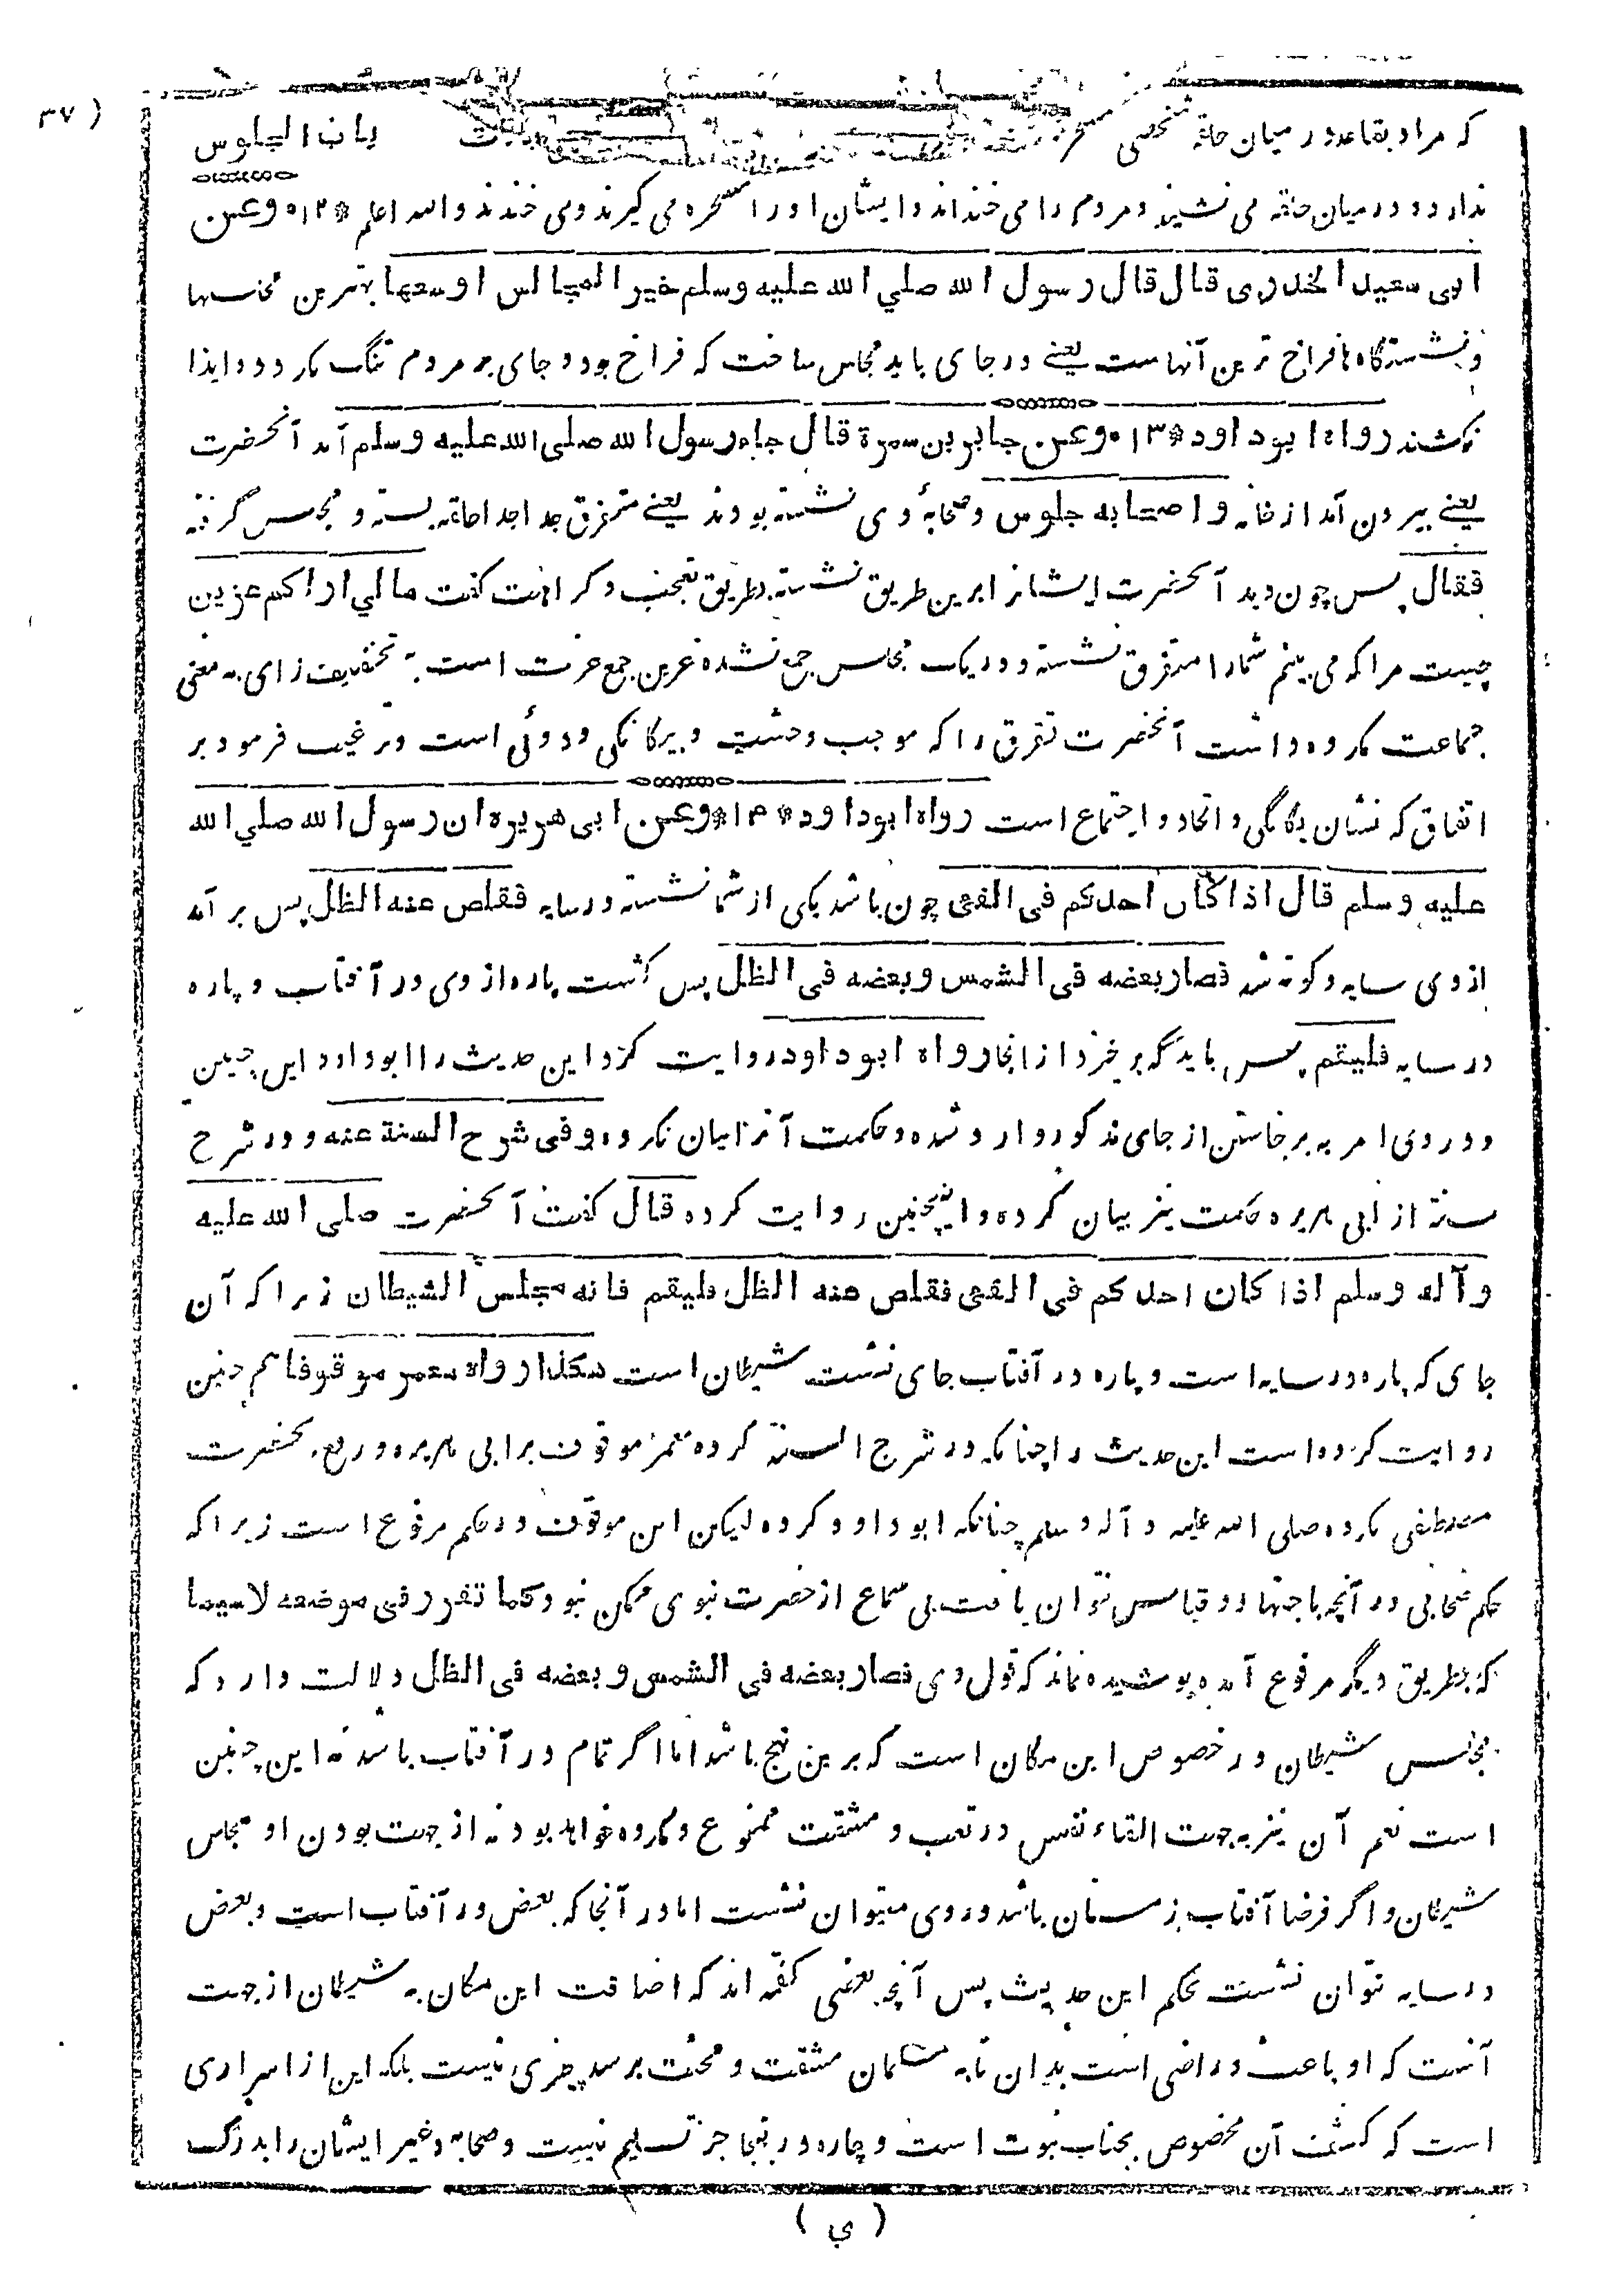 ( ٣٧
که مراد بقاعد در میان حلقه شخصی باب الجلوس
ندارد و در میان حلقه می نشیند و مردم را می خنداند و ایشان او را مسخره می گیرند و می خندند و الله اعلم * ١٢ * وعن
ابی سعید الخدری قال قال رسول الله صلی الله علیه وسلم خیر المجالس اوسعها بهترین مجلسها
و نشستگاه ها فراخ ترین آنهاست یعنی در جای باید مجلس ساخت که فراخ بود و جای بر مردم تنگ نکردد و ایذا
نکشند رواه ابوداود * ١٣ * وعن جابر بن سمرة قال جاء رسول الله صلی الله علیه وسلم آمد آنحضرت
یعنی بیرون آمد از خانه و اصحابه جلوس و صحابهٔ وی نشسته بودند یعنی متفرق جدا جدا حلقه بسته و مجلس گرفته
فقال پس چون دید آنحضرت ایشانرا برین طریق نشسته بطریق تعجب و کراهت گفت مالی اراکم عزین
چیست مرا که می بینم شما را متفرق نشسته و در یک مجلس جمع نشده عزین جمع عزت است به تخفیف زای به معنی
جماعت مکروه داشت آنحضرت تفرق را که موجب وحشت و بیگانگی و دوئی است و ترغیب فرمود بر
اتفاق که نشان یگانگی و اتحاد و اجتماع است رواه ابوداود * ١۴ * وعن ابی هریره ان رسول الله صلی الله
علیه وسلم قال اذا کان احدکم فی الفیء چون باشد یکی از شما نشسته در سایه فقلص عنه الظل پس بر آمد
از وی سایه و کوته شد فصار بعضه فی الشمس و بعضه فی الظل پس گشت پاره از وی در آفتاب و پاره
در سایه فلیقم پس باید که برخیزد از انجا رواه ابوداود روایت کرد این حدیث را ابوداود این چنین
و در وی امر به برخاستن از جای مذکور وارد شده و حکمت آنرا بیان نکرده و فی شرح السنة عنه و در شرح
سنة از ابی هریره حکمت نیز بیان کرده و اینچنین روایت کرده قال گفت آنحضرت صلی الله علیه
و آله وسلم اذا کان احدکم فی الفیء فقلص عنه الظل فلیقم فانه مجلس الشیطان زیرا که آن
جای که پاره در سایه است و پاره در آفتاب جای نشست شیطان است هکذا رواه معمر موقوفا هم چنین
روایت کرده است این حدیث را چنانکه در شرح السنة کرده معمر موقوف بر ابی هریره و رفع بحضرت
مصطفی نکرده صلی الله علیه و آله وسلم چنانکه ابوداود کرده لیکن این موقوف در حکم مرفوع است زیرا که
حکم صحابی در آنچه باجتهاد و قیاس نتوان یافت بی سماع از حضرت نبوی ممکن نبود کما تقرر فی موضعه لاسیما
که بطریق دیگر مرفوع آمده پوشیده نماند که قول وی فصار بعضه فی الشمس و بعضه فی الظل دلالت دارد که
مجلس شیطان در خصوص این مکان است که برین نهج باشد اما اگر تمام در آفتاب باشد نه این چنین
است نعم آن نیز به جهت القاء نفس در تعب و مشقت ممنوع و مکروه خواهد بود نه از جهت بودن او مجلس
شیطان و اگر فرضا آفتاب زمستان باشد در وی میتوان نشست اما در آنجا که بعض در آفتاب است و بعض
در سایه نتوان نشست بحکم این حدیث پس آنچه بعضی گفته اند که اضافت این مکان به شیطان از جهت
آنست که او باعث و راضی است بدان تا به مسلمان مشقت و محنت برسد چیزی نیست بلکه این از اسراری
است که کشف آن مخصوص بجناب نبوت است و چاره در اینجا جز تسلیم نیست و صحابه و غیر ایشان را بدرک
( ي )